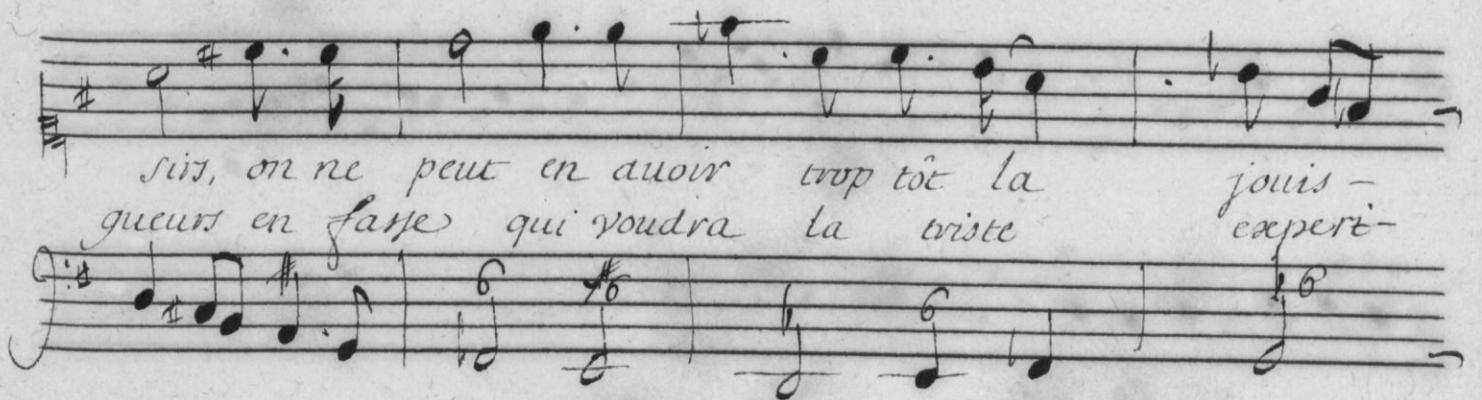 sirs, on ne peut en auoir trop tôt la jouis-
gueurs en fasse qui voudra la triste experi-
6 6 6 6